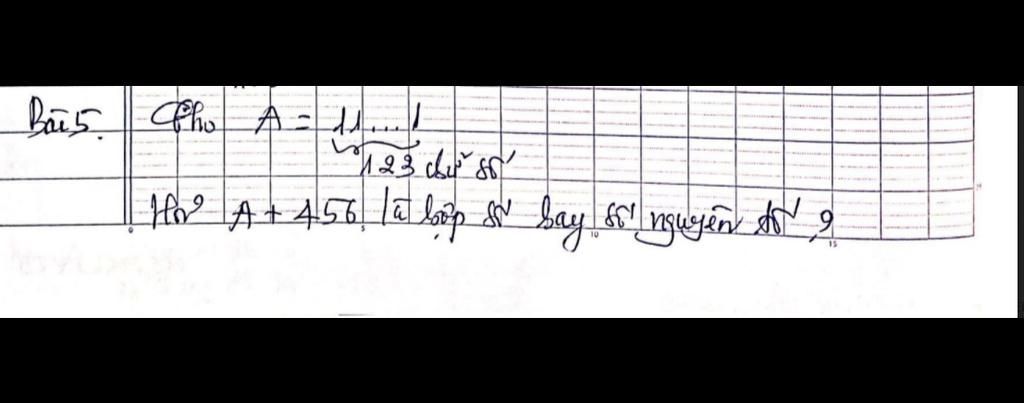 Bài 5. Cho A = 11...1
123 chữ số
Hỏi A + 456 là hợp số hay số nguyên tố ?